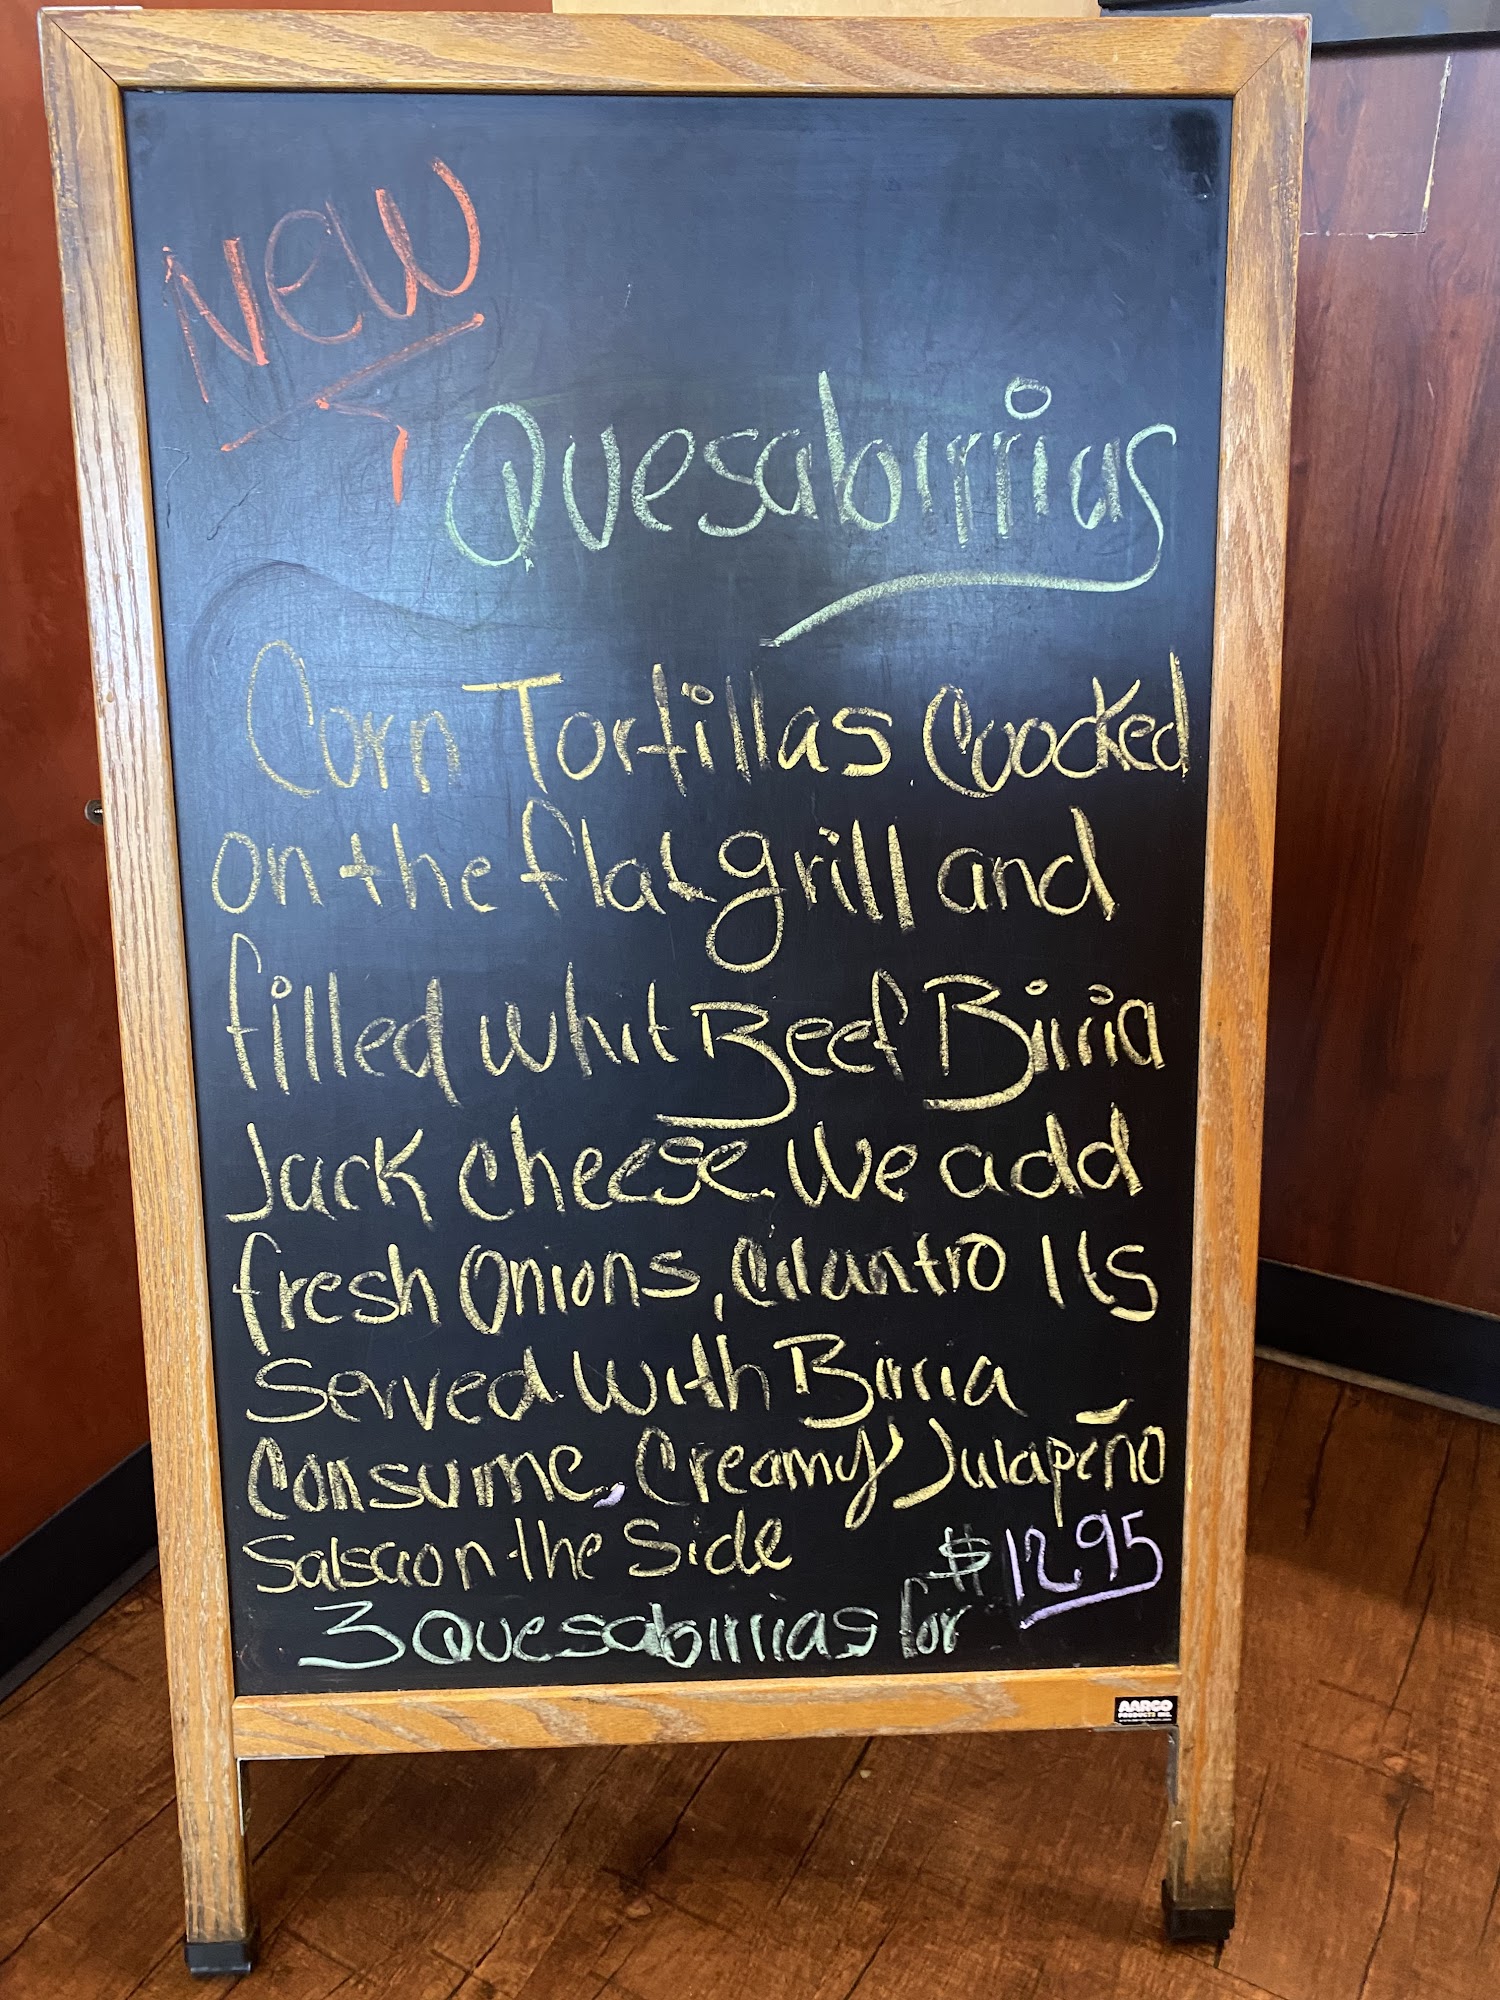 New
Quesabirrias
Corn Tortillas Coocked
on the flat grill and
filled whit Beef Birria
Jack cheese. We add
fresh Onions, Cilantro Its
Served with Birria
Consume, Creamy Jalapeño
Salsa on the Side
$12.95
3 Quesabirrias for
AARCO
PRODUCTS INC.